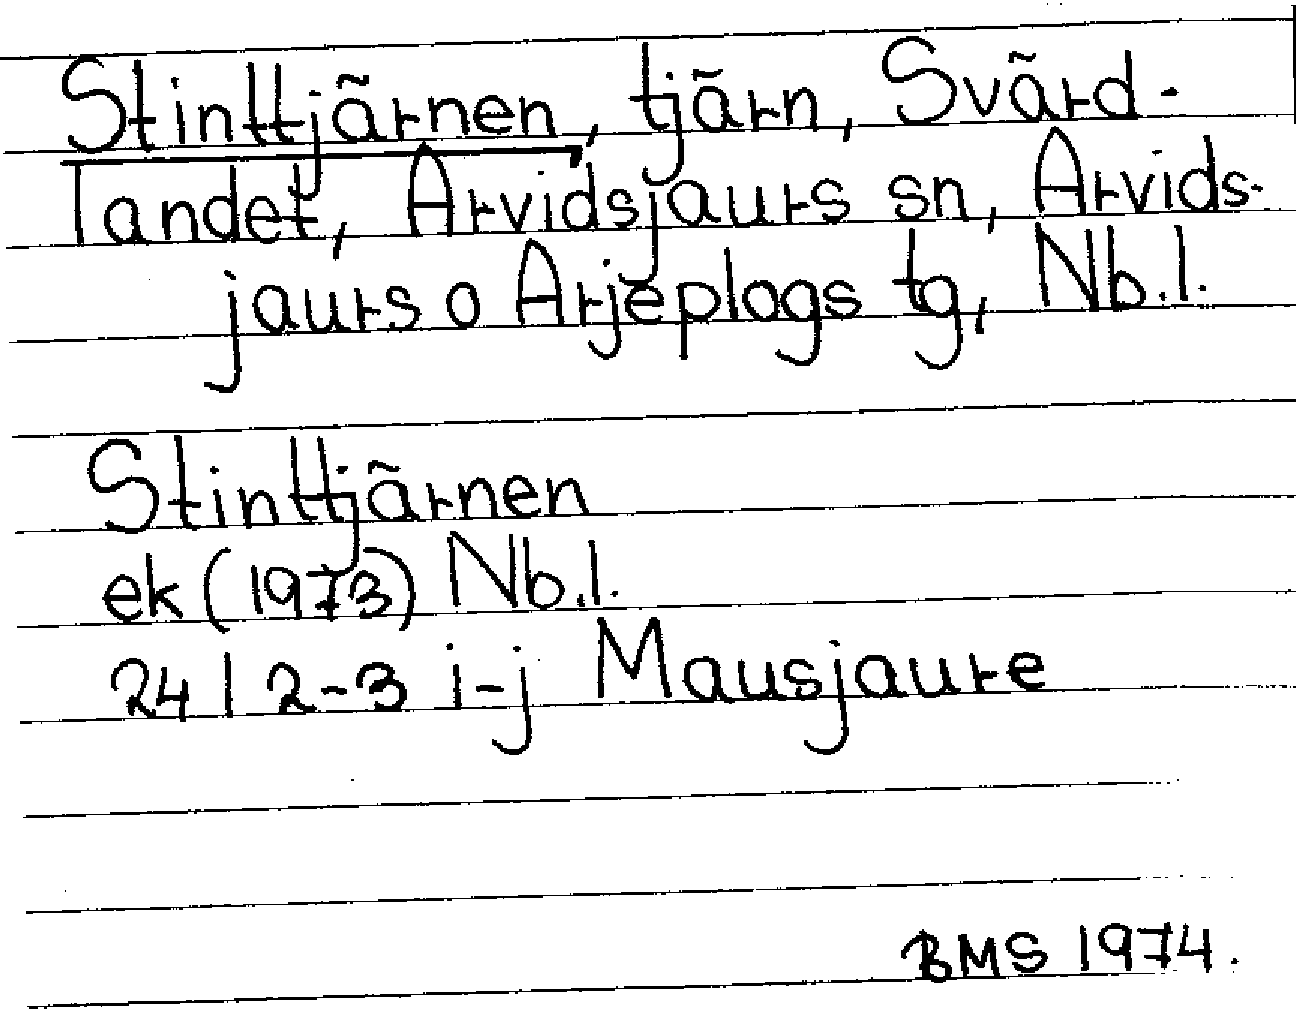 Stinttjärnen, tjärn, Svärd-
landet, Arvidsjaurs sn, Arvids-
jaurs o Arjeplogs tg, Nb.l.
Stinttjärnen
ek (1973) Nb.l.
24 I 2-3 i-j Mausjaure
BMS 1974.